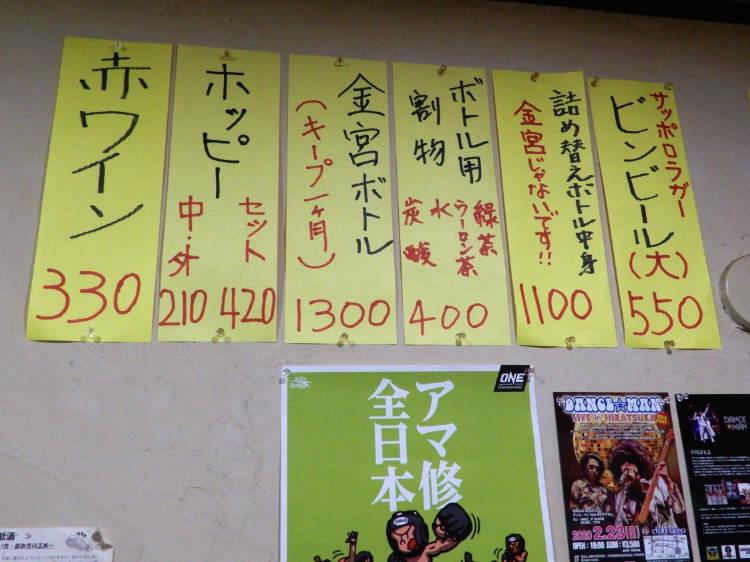 サッポロラガー
ビンビール(大)
550
詰め替えボトル中身
金宮じゃないです!!
1100
ボトル用
割物
緑茶
ウーロン茶
水
炭酸
400
金宮ボトル
(キープ一ヶ月)
1300
ホッピー
セット
420
中・外
210
赤ワイン
330
ONE
アマ修
全日本
DANCE☆MAN
LIVE in HIRATSUKA
2.23
OPEN : 18:00 ADM : ¥3,500
DANCE
★MAN
PROFILE